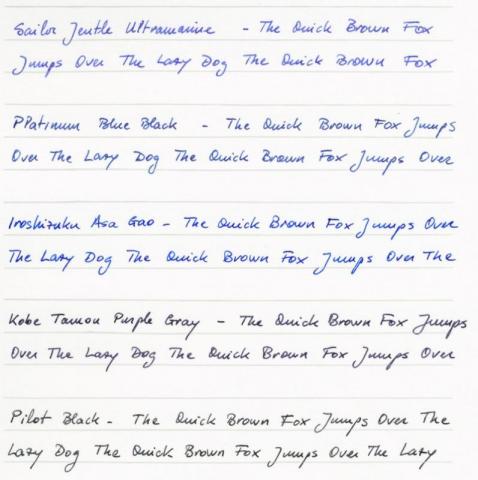 Sailor Jentle Ultramarine - The Quick Brown Fox
Jumps Over The Lazy Dog The Quick Brown Fox
PPatinum Blue Black - The Quick Brown Fox Jumps
Over The Lazy Dog The Quick Brown Fox Jumps Over
Iroshizuku Asa Gao - The Quick Brown Fox Jumps Over
The Lazy Dog The Quick Brown Fox Jumps Over The
Kobe Tamon Purple Gray - The Quick Brown Fox Jumps
Over The Lazy Dog The Quick Brown Fox Jumps Over
Pilot Black - The Quick Brown Fox Jumps Over The
Lazy Dog The Quick Brown Fox Jumps Over The Lazy